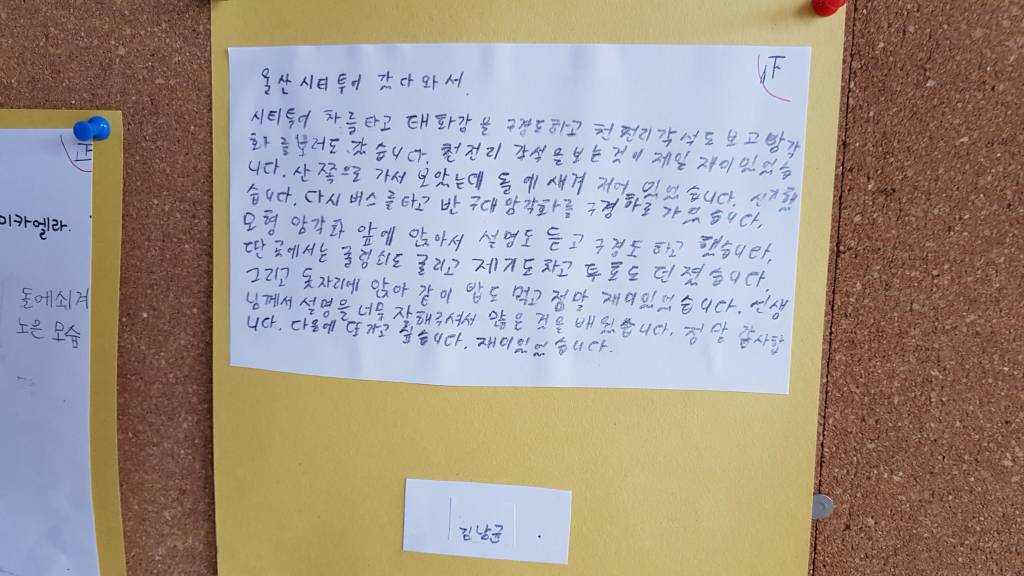 울산 시티투어 갔다 와서.
시티투어 차를 타고 태화강을 구경도하고 천전리 각석도 보고 암각
화를 보러도 갔습니다. 천전리 각석을 보는 것이 제일 재미있었습
니다. 산쪽으로 가서 보았는데 돌에 새겨 져어 있었습니다. 신기했
습니다. 다시 버스를 타고 반구대 암각화를 구경하로 가었습니다.
모형 암각화 앞에 앉아서 설명도 듣고 구경도 하고 했습니다.
딴 곳에서는 굴렁쇠도 굴리고 제기도 차고 투호도 던졌습니다.
그리고 돗자리에 앉아 같이 밥도 먹고 정말 재미있었습니다. 선생
님께서 설명을 너무 자해주셔서 많은 것을 배웠습니다. 정말 감사합
니다. 다음에 또 가고 싶습니다. 재미있었습니다.
김남균
미카엘라.
돌에쇠겨
노은 모습